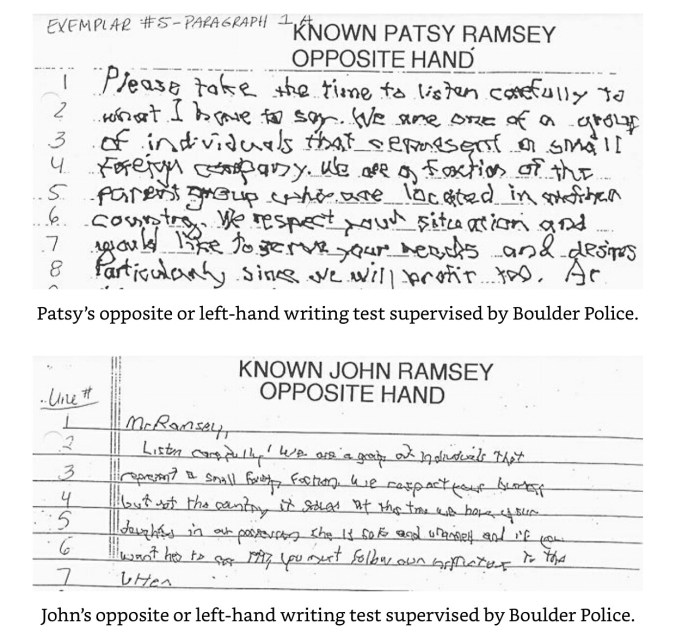 EXEMPLAR #5-PARAGRAPH 1A
KNOWN PATSY RAMSEY
OPPOSITE HAND
1 Please take the time to listen carefully to
2 what I have to say. We are one of a group
3 of individuals that represent a small
4 foreign company. We are a faction of the
5 parent group who are located in another
6 country. We respect your situation and
7 would like to serve your needs and desires
8 Particularly since we will profit too. At
Patsy's opposite or left-hand writing test supervised by Boulder Police.
KNOWN JOHN RAMSEY
OPPOSITE HAND
Line #
1 Mr Ramsey,
2 Listen carefully! We are a group of individuals that
3 represent a small foreign faction. We respect your
4 but not the country it At this time we have your
5 daughter in our possession she is safe and and if you
6 want her to see 1997, you must follow our to the
7 letter
John's opposite or left-hand writing test supervised by Boulder Police.